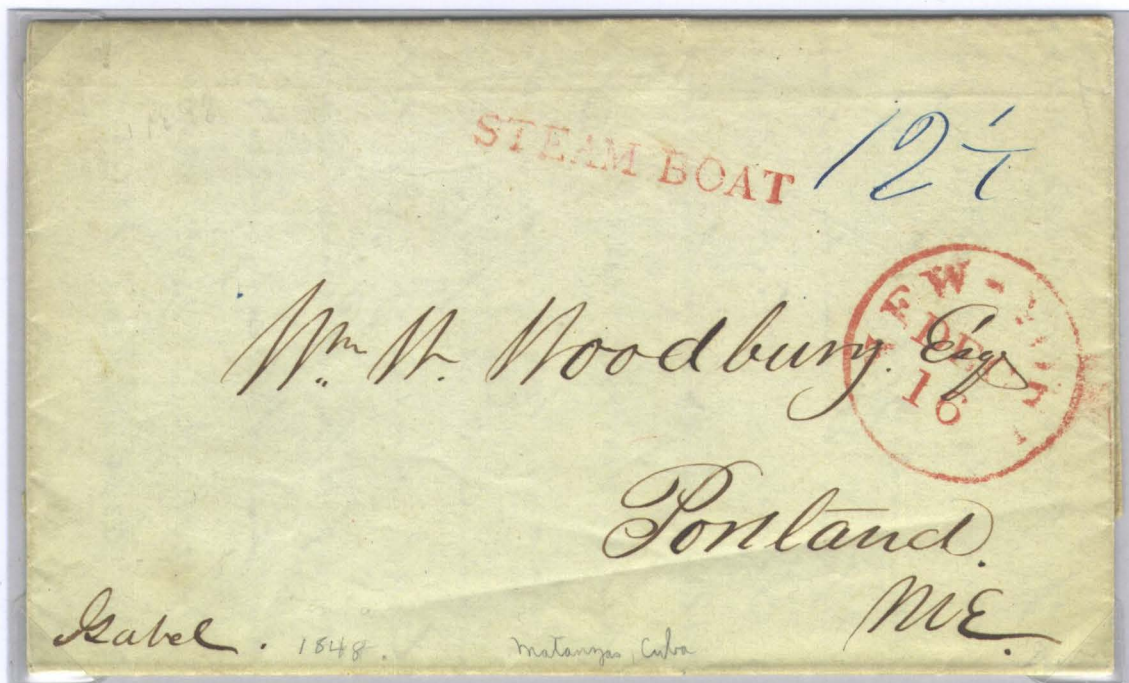 STEAM BOAT 12½
NEW-YORK
DEC
16
Wm. H. Woodbury. Esqr
Portland.
ME.
Isabel. 1848. Matanzas, Cuba